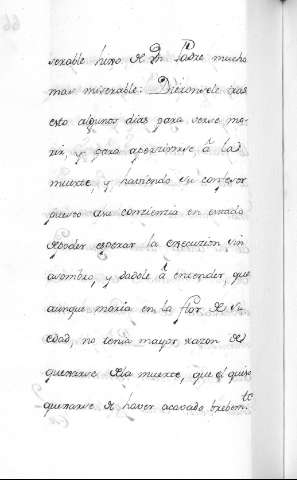 serable hixo de Un Padre mucho
mas miserable: Dieronsele tras
esto algunos dias para verse mo-
rir, y para apercivirse â la
muerte, y haviendo su confesor
puesto su conziencia en estado
de poder esperar la execuzion sin
asombro, y dadole â entender, que
aunque moria en la flor de su
edad, no tenia mayor razon de
quexarse de la muerte, que el que
quexarse de haver acavado brebem.te